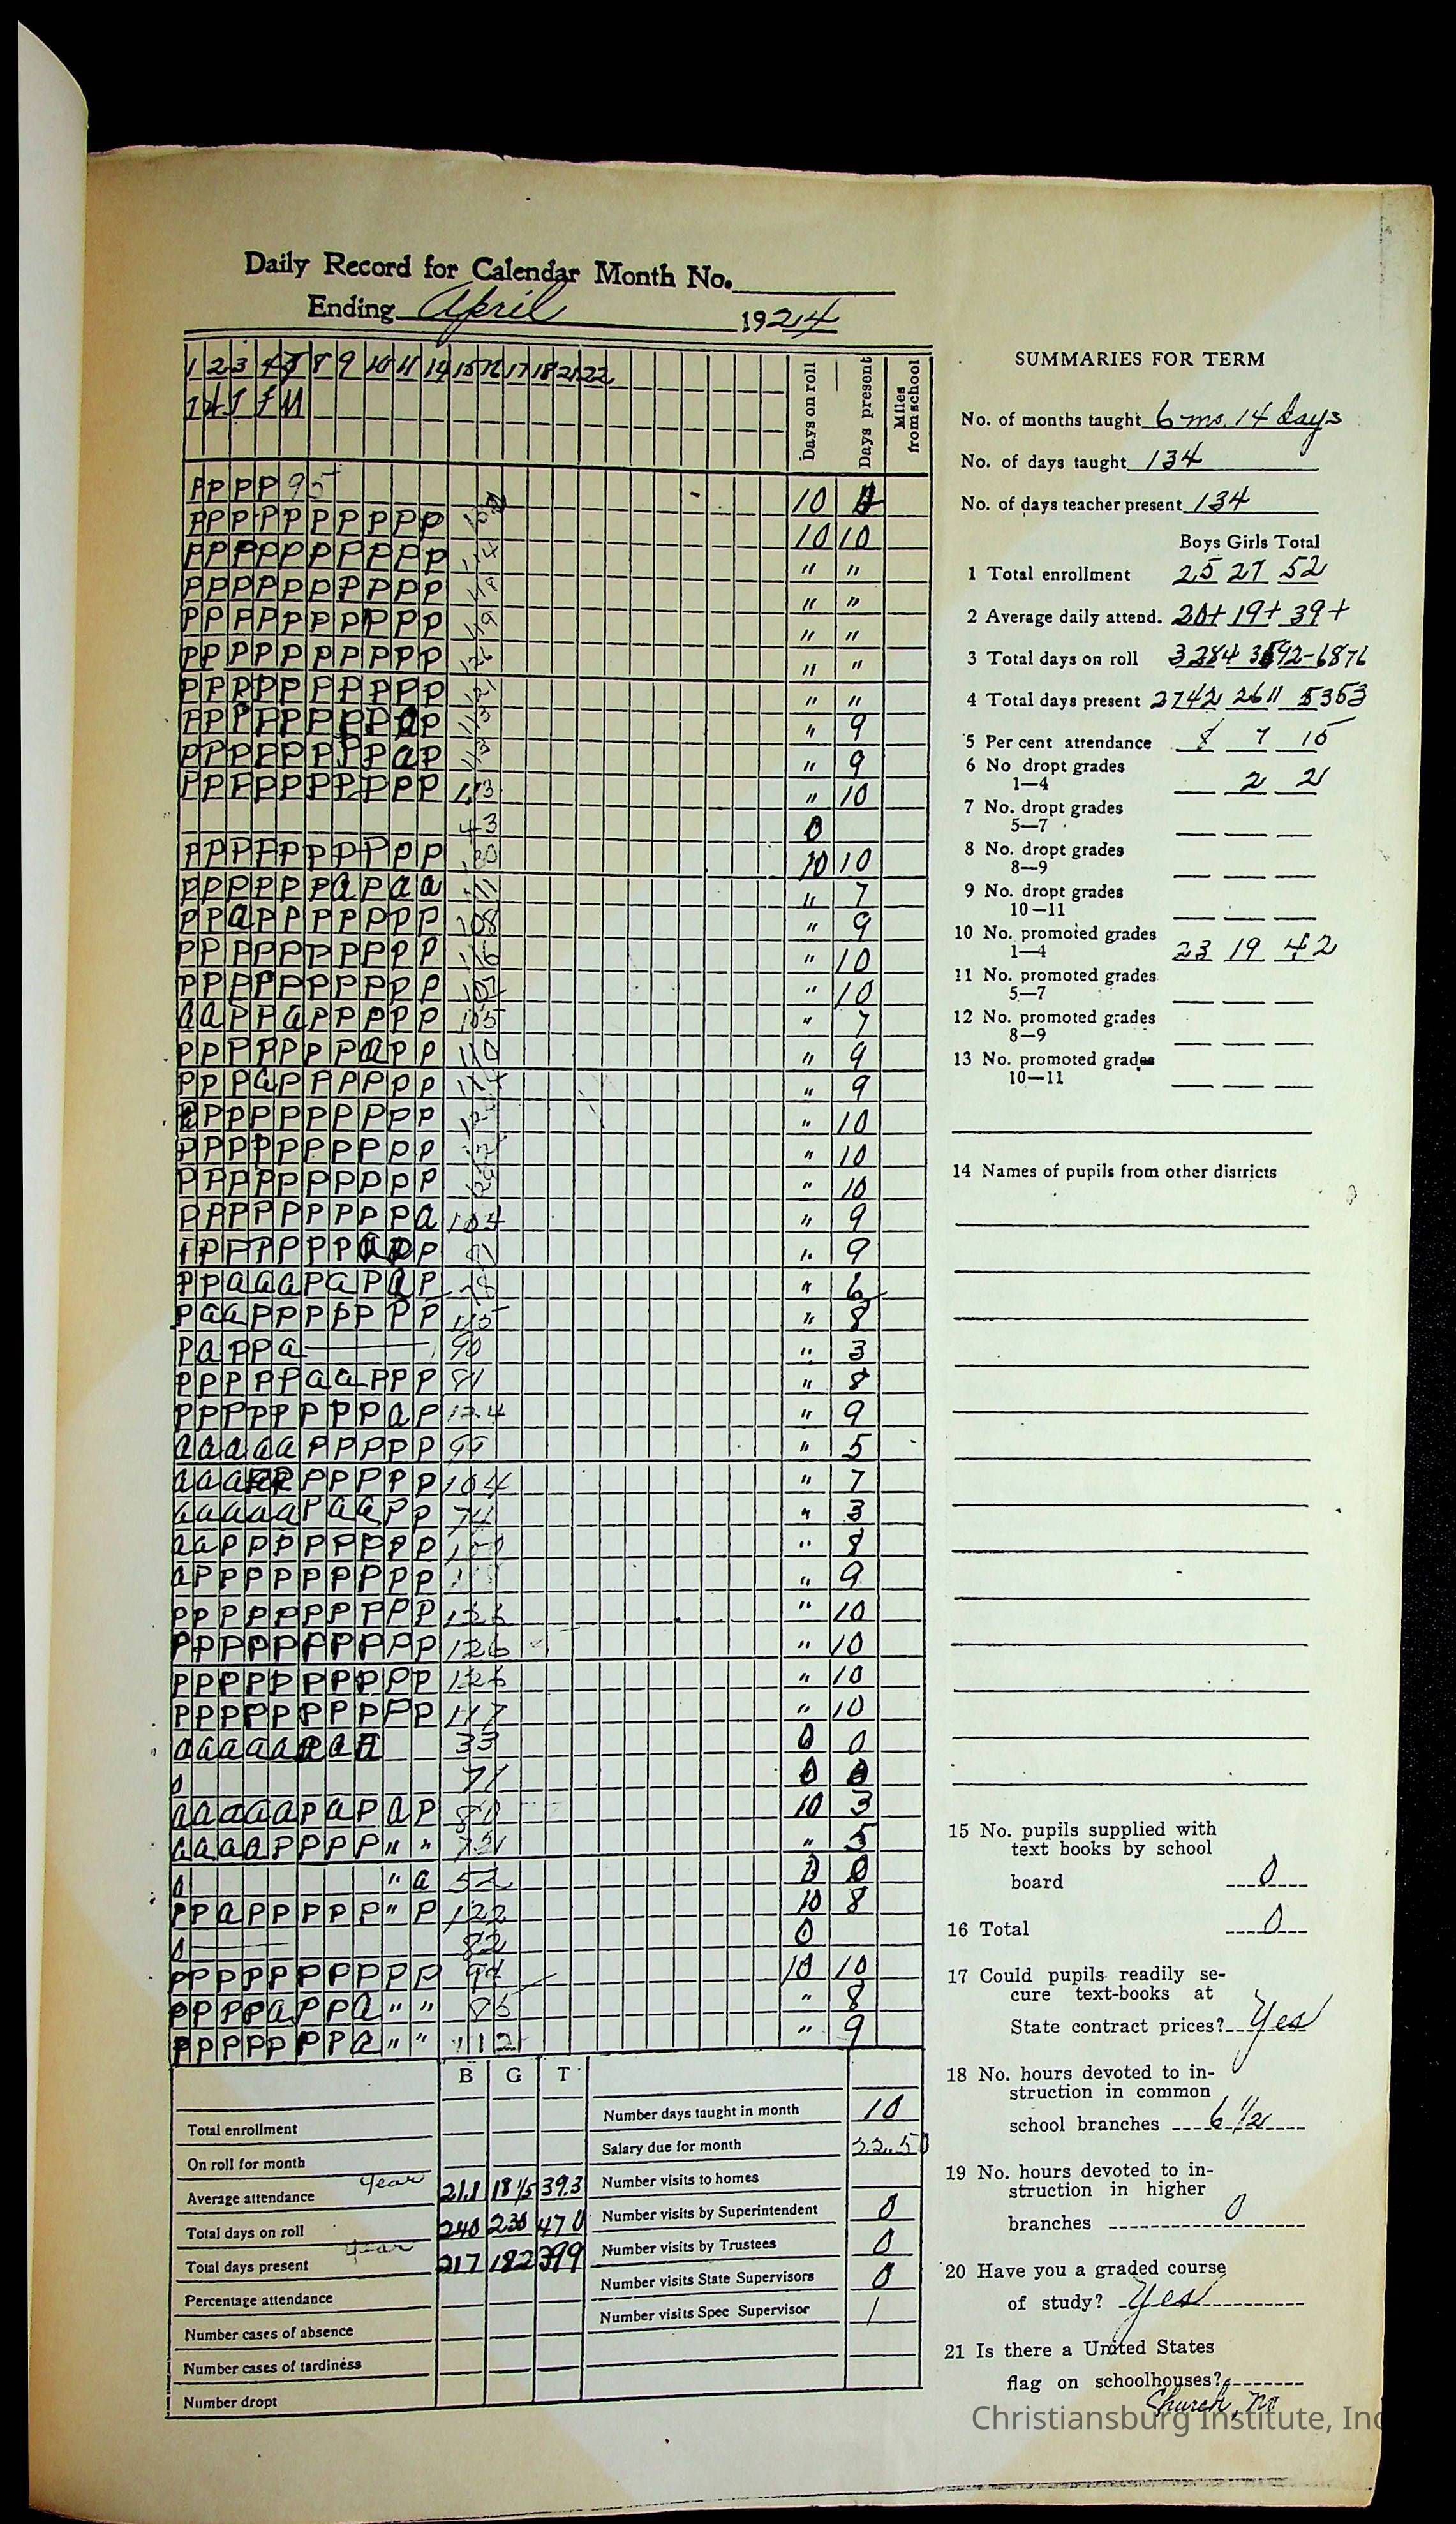 Daily Record for Calendar Month No.
Ending April 1924
1 2 3 4 7 8 9 10 11 14 15 16 17 18 21 22
T W T F M
Days on roll
Days present
Miles from school
P P P P 95 10
P P P P P P P P P P 10 10
P P P P P P P P P P 114 " "
P P P P P P P P P P 118 " "
P P P P P P P P P P 119 " "
P P P P P P P P P P 126 " "
P P P P P P P P P P 121 " "
P P P P P P P P a P 113 " 9
P P P P P P P P a P 113 " 9
P P P P P P P P P P 113 " 10
43 0
P P P P P P P P P P 130 10 10
P P P P P P a P a a 111 " 7
P P a P P P P P P P 108 " 9
P P P P P P P P P P 116 " 10
P P P P P P P P P P 107 " 10
a a P P a P P P P P 105 " 7
P P P P P P P a P P 110 " 9
P P P a P P P P P P 114 " 9
P P P P P P P P P " 10
P P P P P P P P P P " 10
P P P P P P P P P P " 10
P P P P P P P P P a 104 " 9
P P P P P P P a P P 91 " 9
P P a a a P a P a P 78 " 6
P a a P P P P P P P 115 " 8
P a P P a 90 " 3
P P P P P a a P P P 81 " 8
P P P P P P P P a P 124 " 9
a a a a a P P P P P " 5
a a a P P P P P P P 104 " 7
a a a a a P a a P P 74 " 3
a a P P P P P P P P " 8
a P P P P P P P P P " 9
P P P P P P P P P P 126 " 10
P P P P P P P P P P 126 " 10
P P P P P P P P P P 126 " 10
P P P P P P P P P P 117 " 10
a a a a a a 33 0 0
0 71 0 0
a a a a a P a P a P 80 10 3
a a a a P P P P " " " 5
0 " a 52 0 0
P P a P P P P P " P 122 10 8
0 82 0
P P P P P P P P P P 94 10 10
P P P P a P P a " " 86 " 8
P P P P P P P a " " 112 " 9
B G T
Total enrollment
On roll for month
Average attendance Year 21.1 18 1/5 39.3
Total days on roll 240 230 470
Total days present Year 217 182 399
Percentage attendance
Number cases of absence
Number cases of tardiness
Number dropt
Number days taught in month 10
Salary due for month 22.50
Number visits to homes
Number visits by Superintendent 0
Number visits by Trustees 0
Number visits State Supervisors 0
Number visits Spec Supervisor 1
SUMMARIES FOR TERM
No. of months taught 6 mo. 14 days
No. of days taught 134
No. of days teacher present 134
Boys Girls Total
1 Total enrollment 25 27 52
2 Average daily attend. 20+ 19+ 39+
3 Total days on roll 3284 3592-6876
4 Total days present 2742 2611 5353
5 Per cent attendance 8 7 15
6 No dropt grades
1—4 2 2
7 No. dropt grades
5—7
8 No. dropt grades
8—9
9 No. dropt grades
10—11
10 No. promoted grades
1—4 23 19 42
11 No. promoted grades
5—7
12 No. promoted grades
8—9
13 No. promoted grades
10—11
14 Names of pupils from other districts
15 No. pupils supplied with
text books by school
board 0
16 Total 0
17 Could pupils readily se-
cure text-books at
State contract prices? Yes
18 No. hours devoted to in-
struction in common
school branches 6 1/2
19 No. hours devoted to in-
struction in higher
branches 0
20 Have you a graded course
of study? Yes
21 Is there a United States
flag on schoolhouses?
Church, no
Christiansburg Institute, Inc